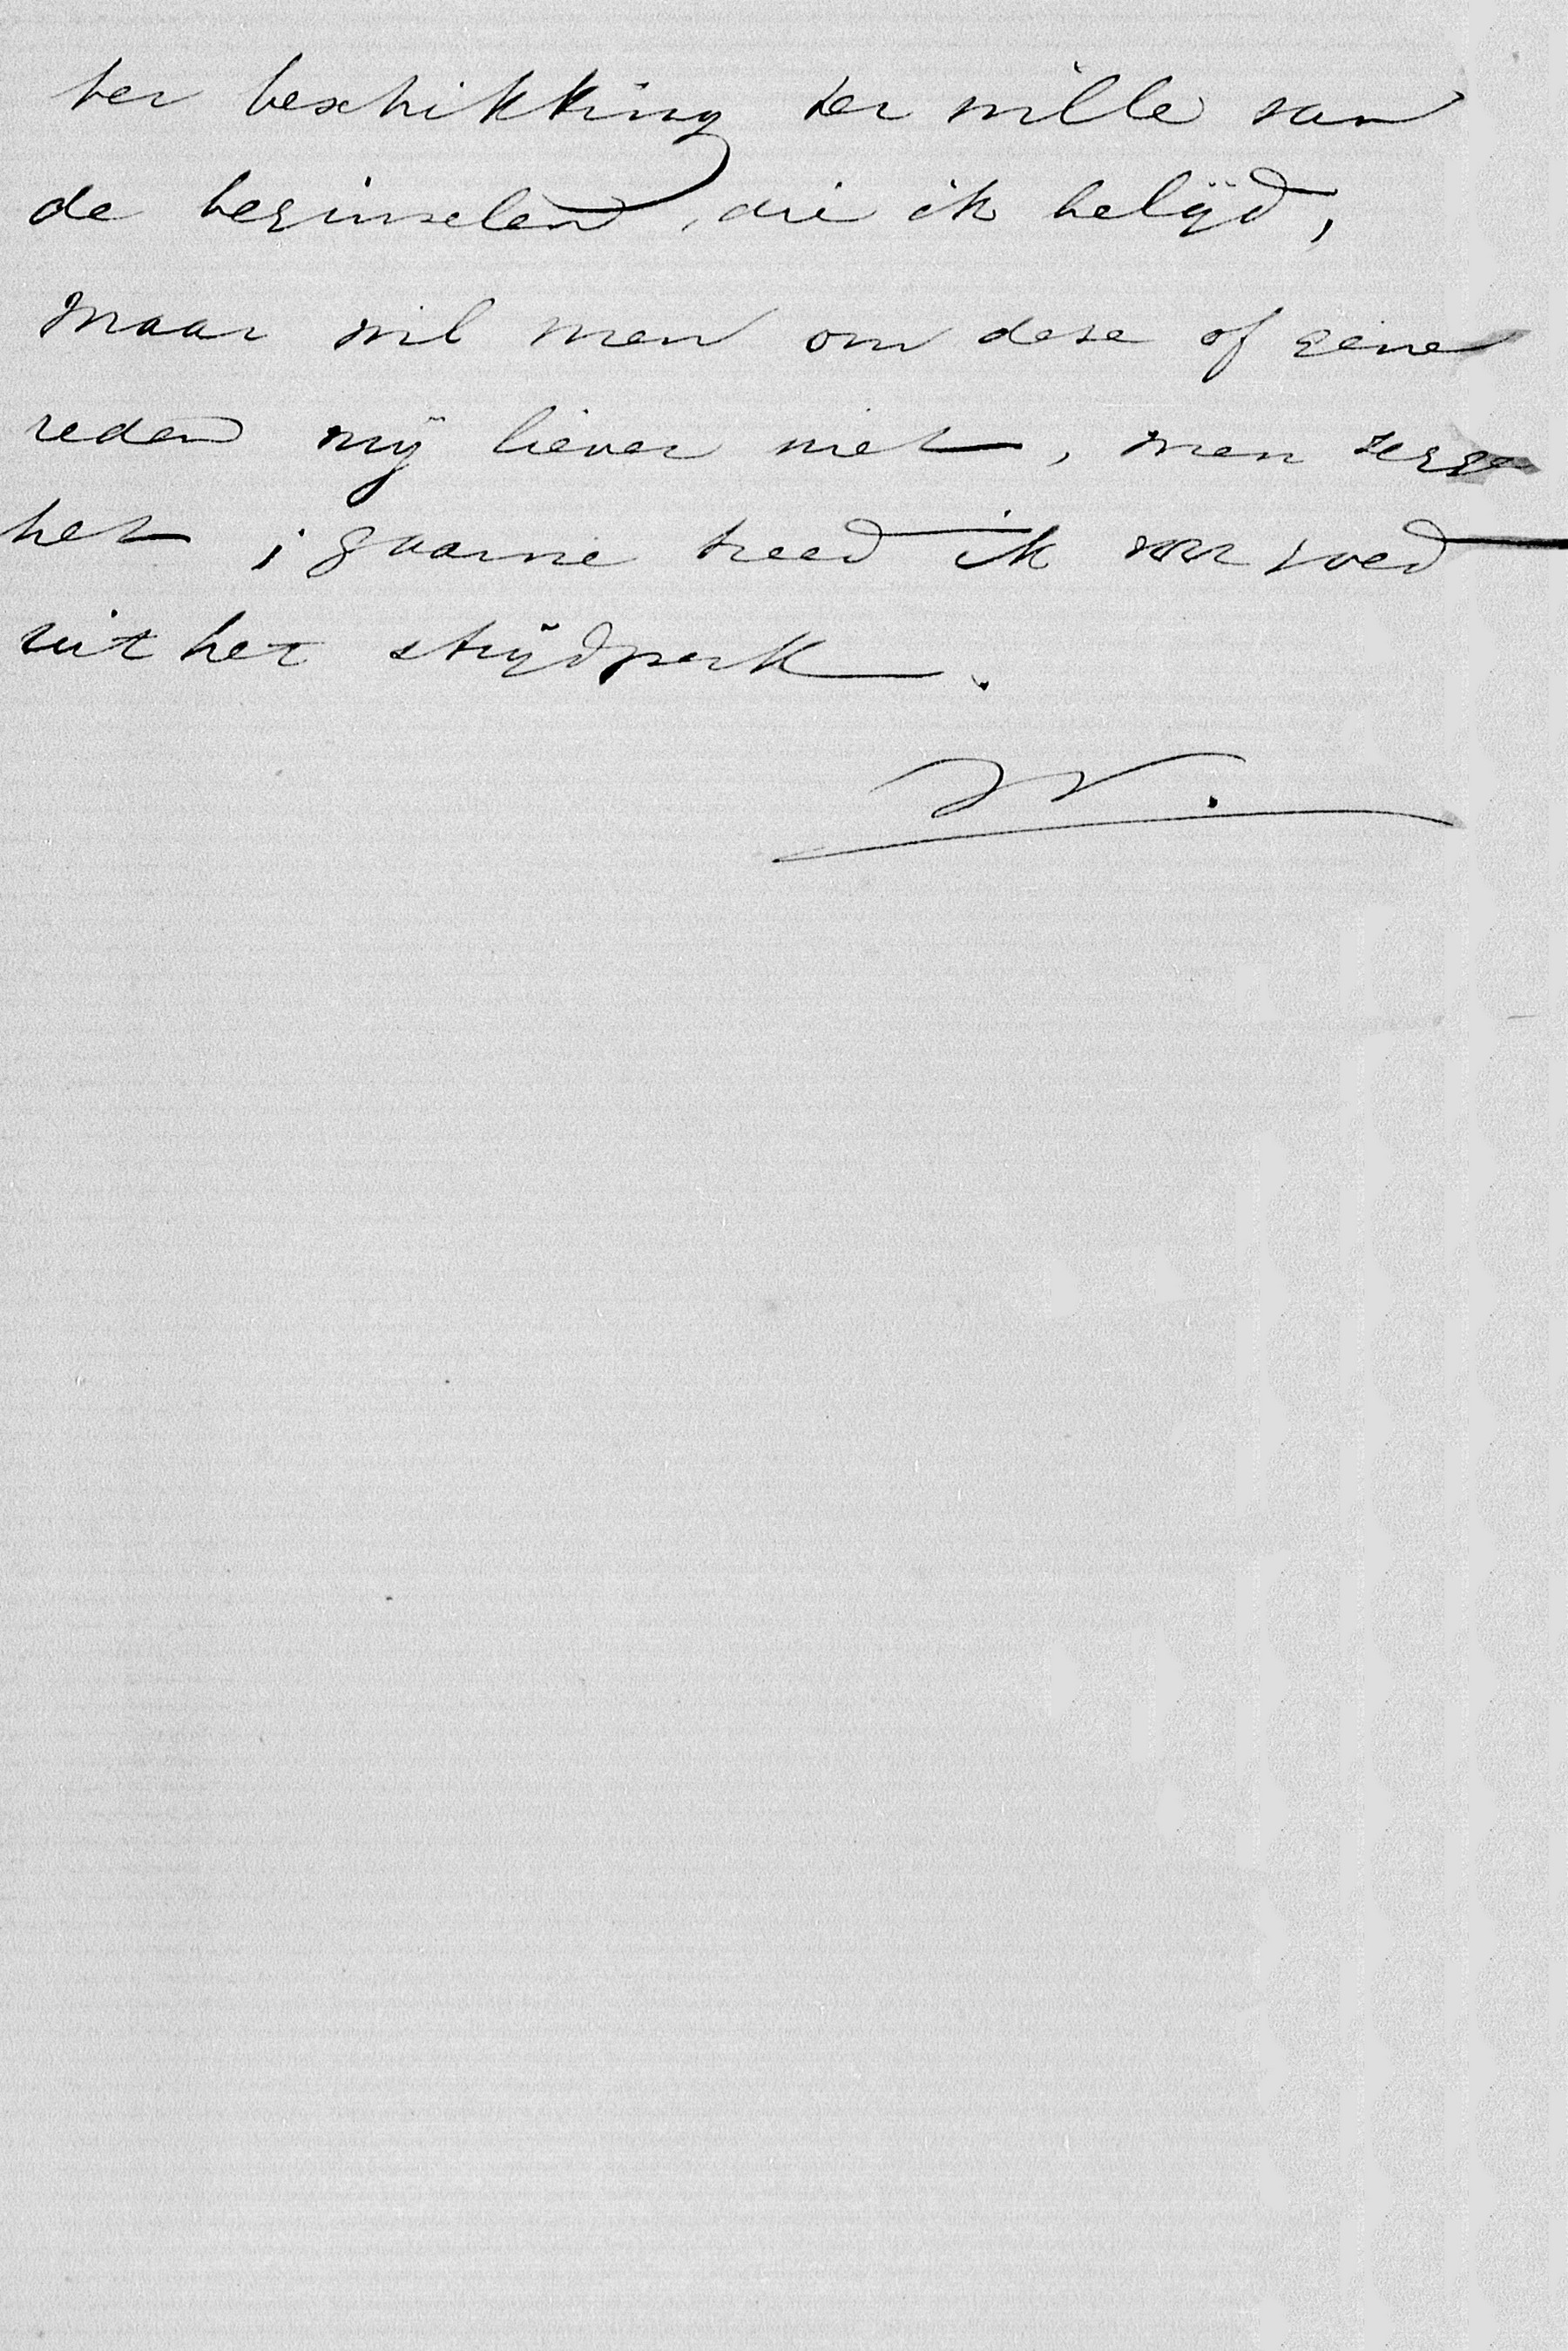 ter beschikking ter wille van
de beginselen, die ik belijd,
maar wil men om deze of gene
reden mij liever niet, men zegge
het; gaarne treed ik voor goed
uit het strijdperk.
W.